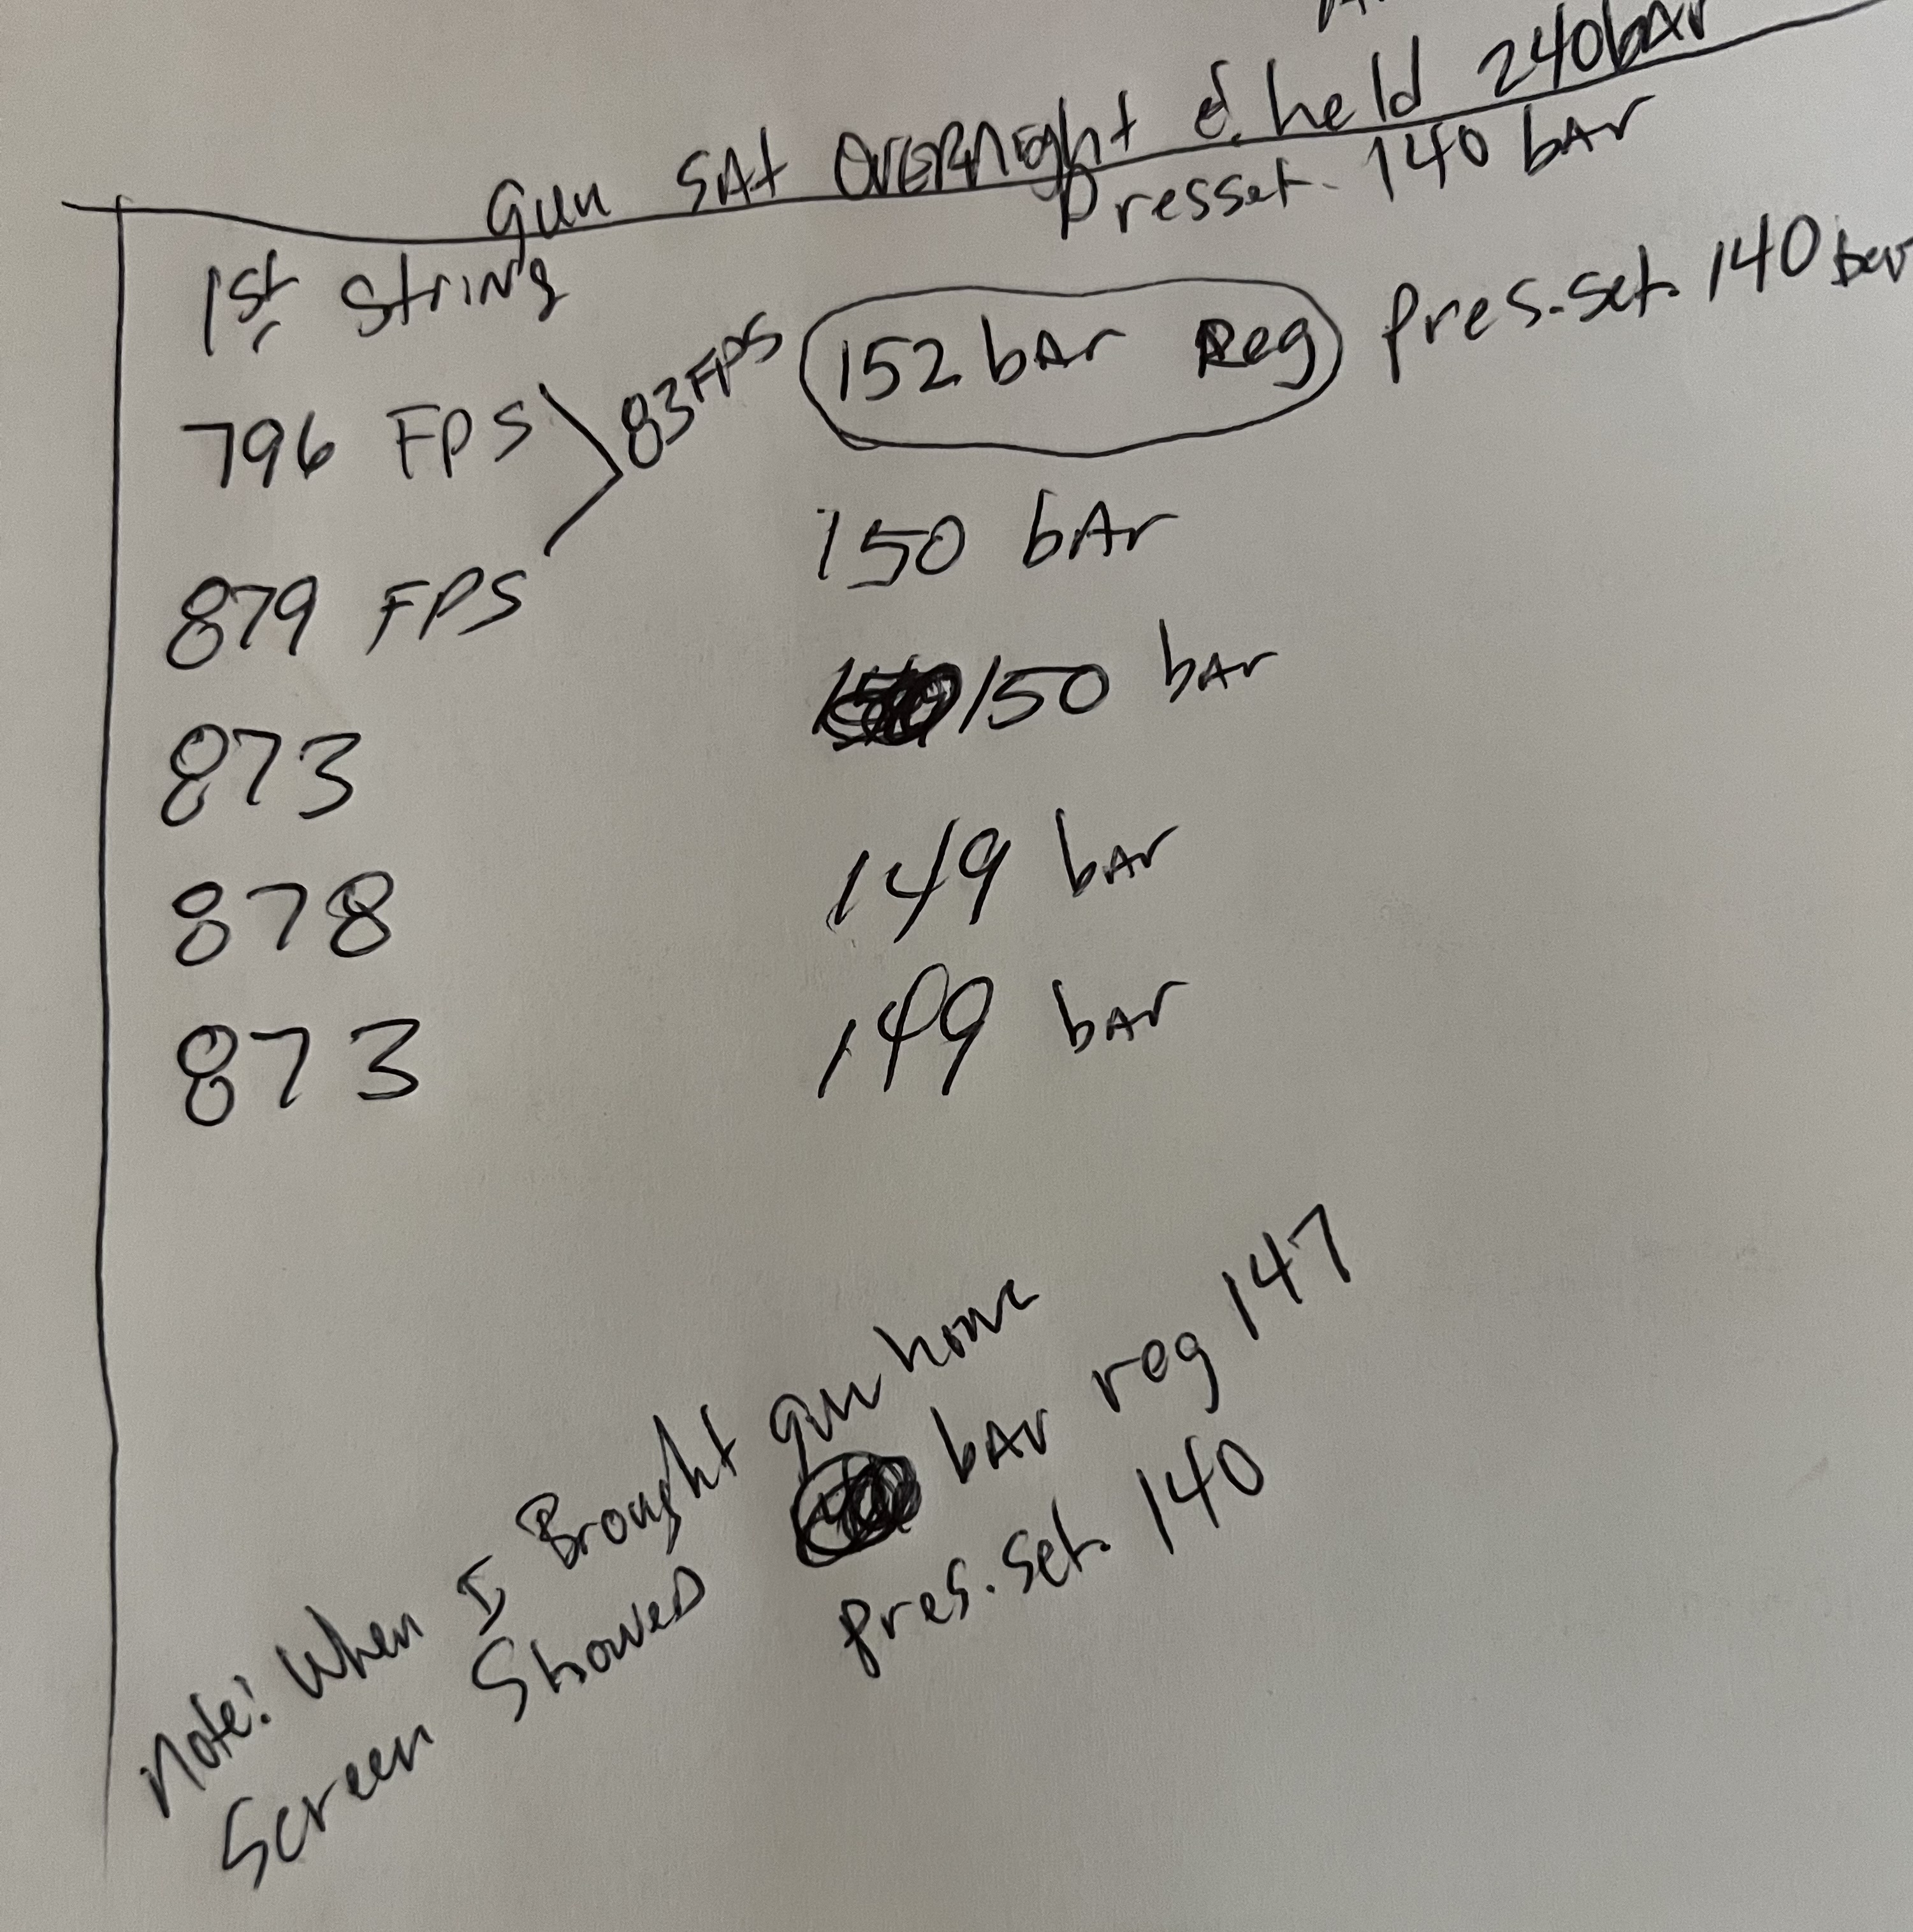 Gun SAt OVERNight & held 240bAr
Presset. 140 bAr
1st String
796 FPS 83 FPS 152 bAr Reg pres.set. 140 bar
879 FPS 150 bAr
873 150 bAr
878 149 bAr
873 149 bAr
Note: When I Brought gun home
Screen Showed bAr reg 147
pres.set. 140